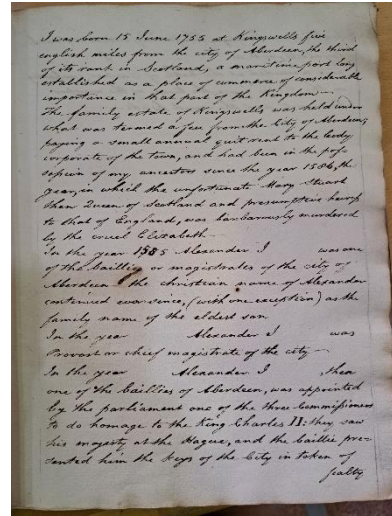 I was born 15 June 1755 at Kingswells five
english miles from the city of Aberdeen, the third
of its rank in Scotland, a maritime port long
established as a place of commerce of considerable
importance in that part of the Kingdom —
The family estate of Kingswells was held under
what was termed a feu from the City of Aberdeen,
paying a small annual quit rent to the body
corporate of the town, and had been in the pos-
session of my ancestors since the year 1586, the
year, in which the unfortunate Mary Stuart
then Queen of Scotland and presumptive
to that of England, was barbarously murdered
by the cruel Elizabeth —
In the year 1585 Alexander J was one
of the baillies or magistrates of the city of
Aberdeen the christian name of Alexander
continued ever since, (with one exception) as the
family name of the eldest son
In the year Alexander J was
Provost or chief magistrate of the city —
In the year Alexander J then
one of the baillies of Aberdeen, was appointed
by the parliament one of the three Commissioners
to do homage to the King Charles II: they saw
his majesty at the Hague, and the baillie pre-
sented him the keys of the City in token of
fealty